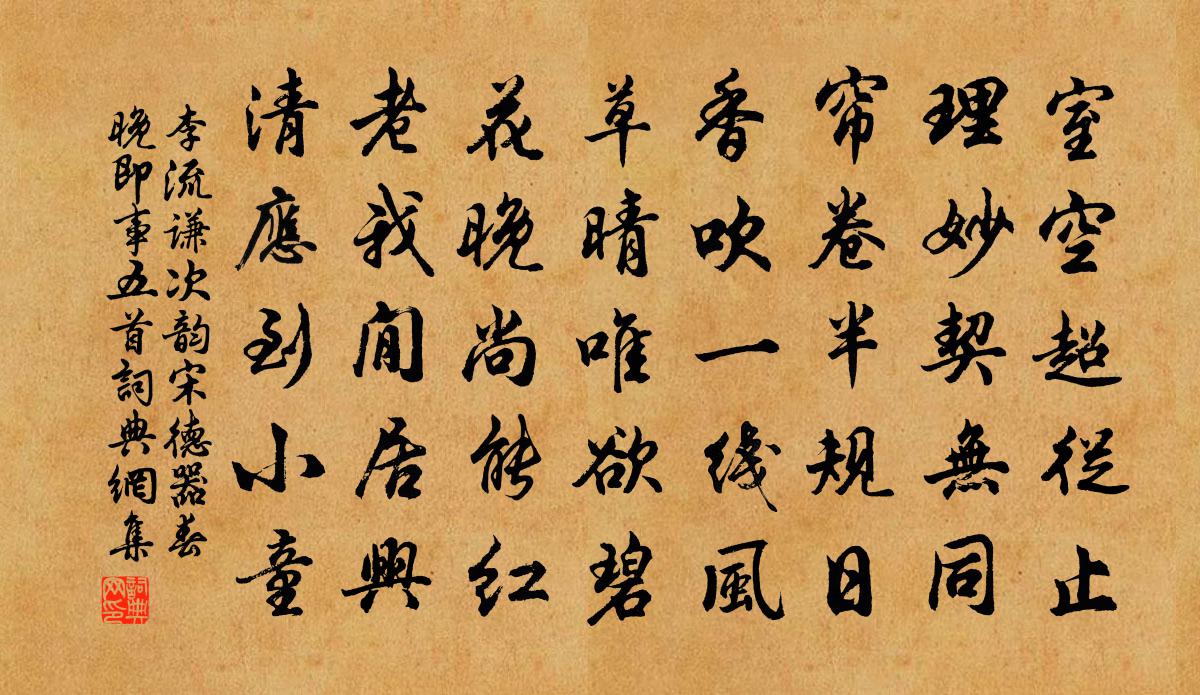 室空超從止
理妙契無同
帘卷半規日
香吹一线風
草晴唯欲碧
花晚尚能紅
老我閒居興
清應到小童
李流谦次韵宋德器春
晚即事五首詞典網集
詞典
网印